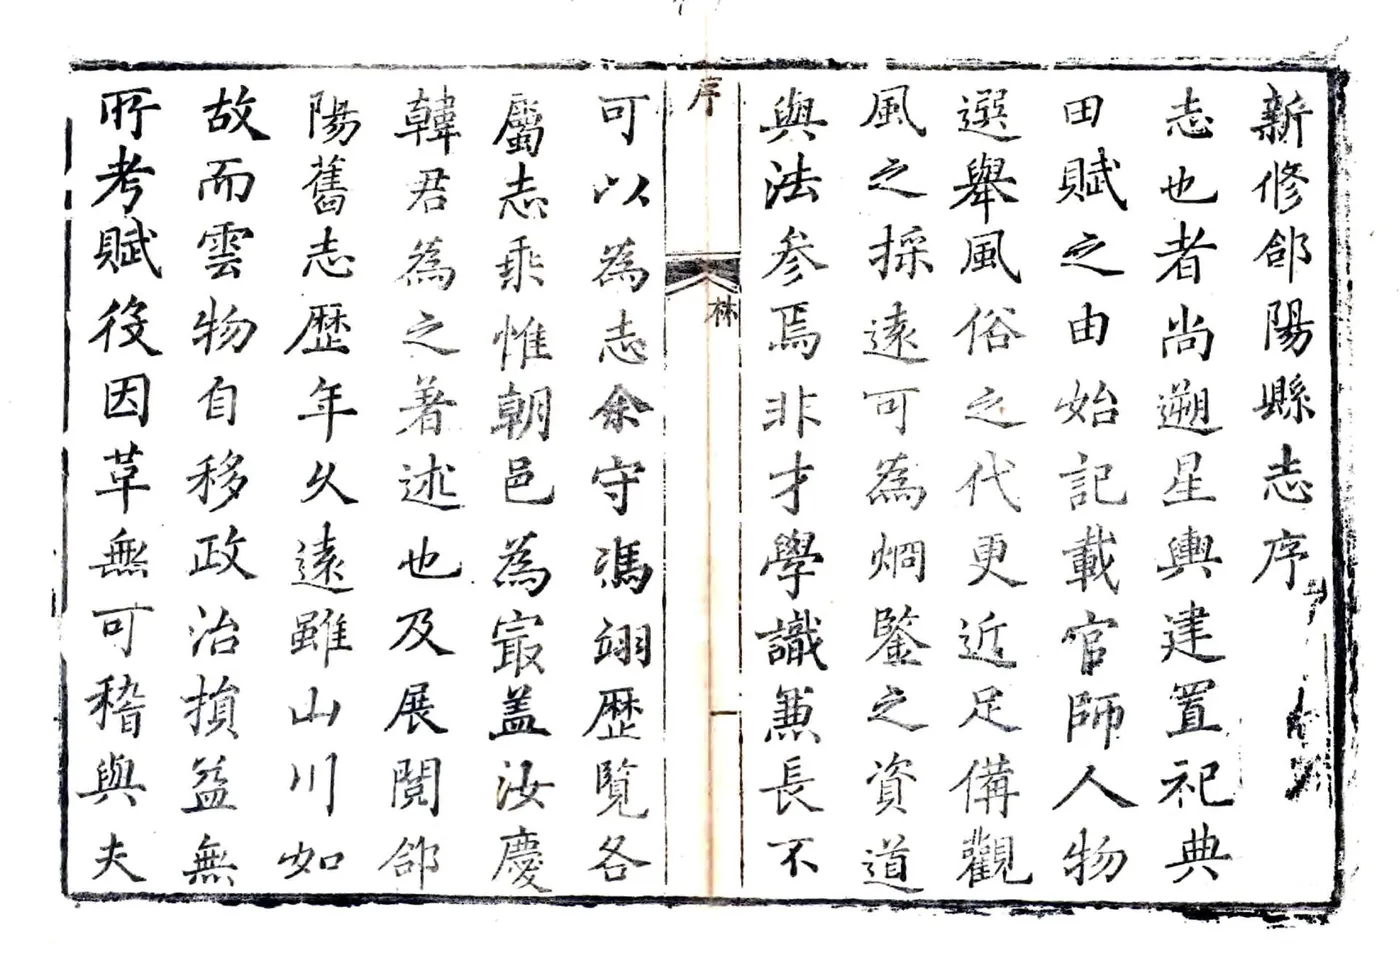 新修郃陽縣志序
志也者尚遡星輿建置祀典
田賦之由始記載官師人物
選舉風俗之代更近足備觀
風之採遠可為烱鑒之資道
與法参焉非才學識兼長不
序
林
一
可以為志余守馮翊歷覧各
屬志乘惟朝邑為㝡盖汝慶
韓君為之著述也及展閲郃
陽舊志歷年久遠雖山川如
故而雲物自移政治損益無
所考賦役因革無可稽與夫